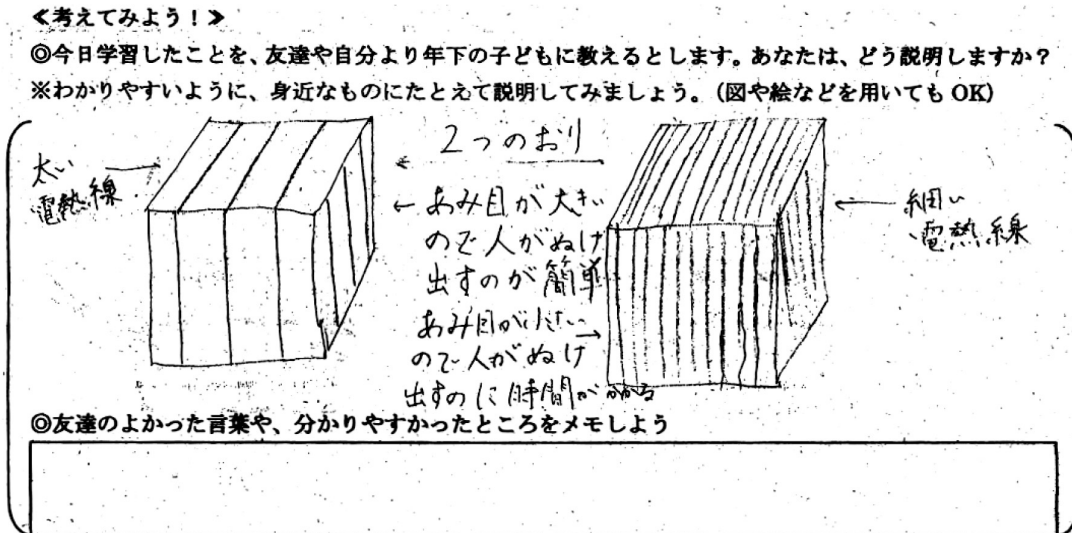 ≪考えてみよう！≫
◎今日学習したことを、友達や自分より年下の子どもに教えるとします。あなたは、どう説明しますか？
※わかりやすいように、身近なものにたとえて説明してみましょう。(図や絵などを用いても OK)
太い
電熱線
2つのおり
← あみ目が大きい
ので人がぬけ
出すのが簡単
あみ目が小さい
ので人がぬけ
出すのに時間がかかる
細い
電熱線
◎友達のよかった言葉や、分かりやすかったところをメモしよう